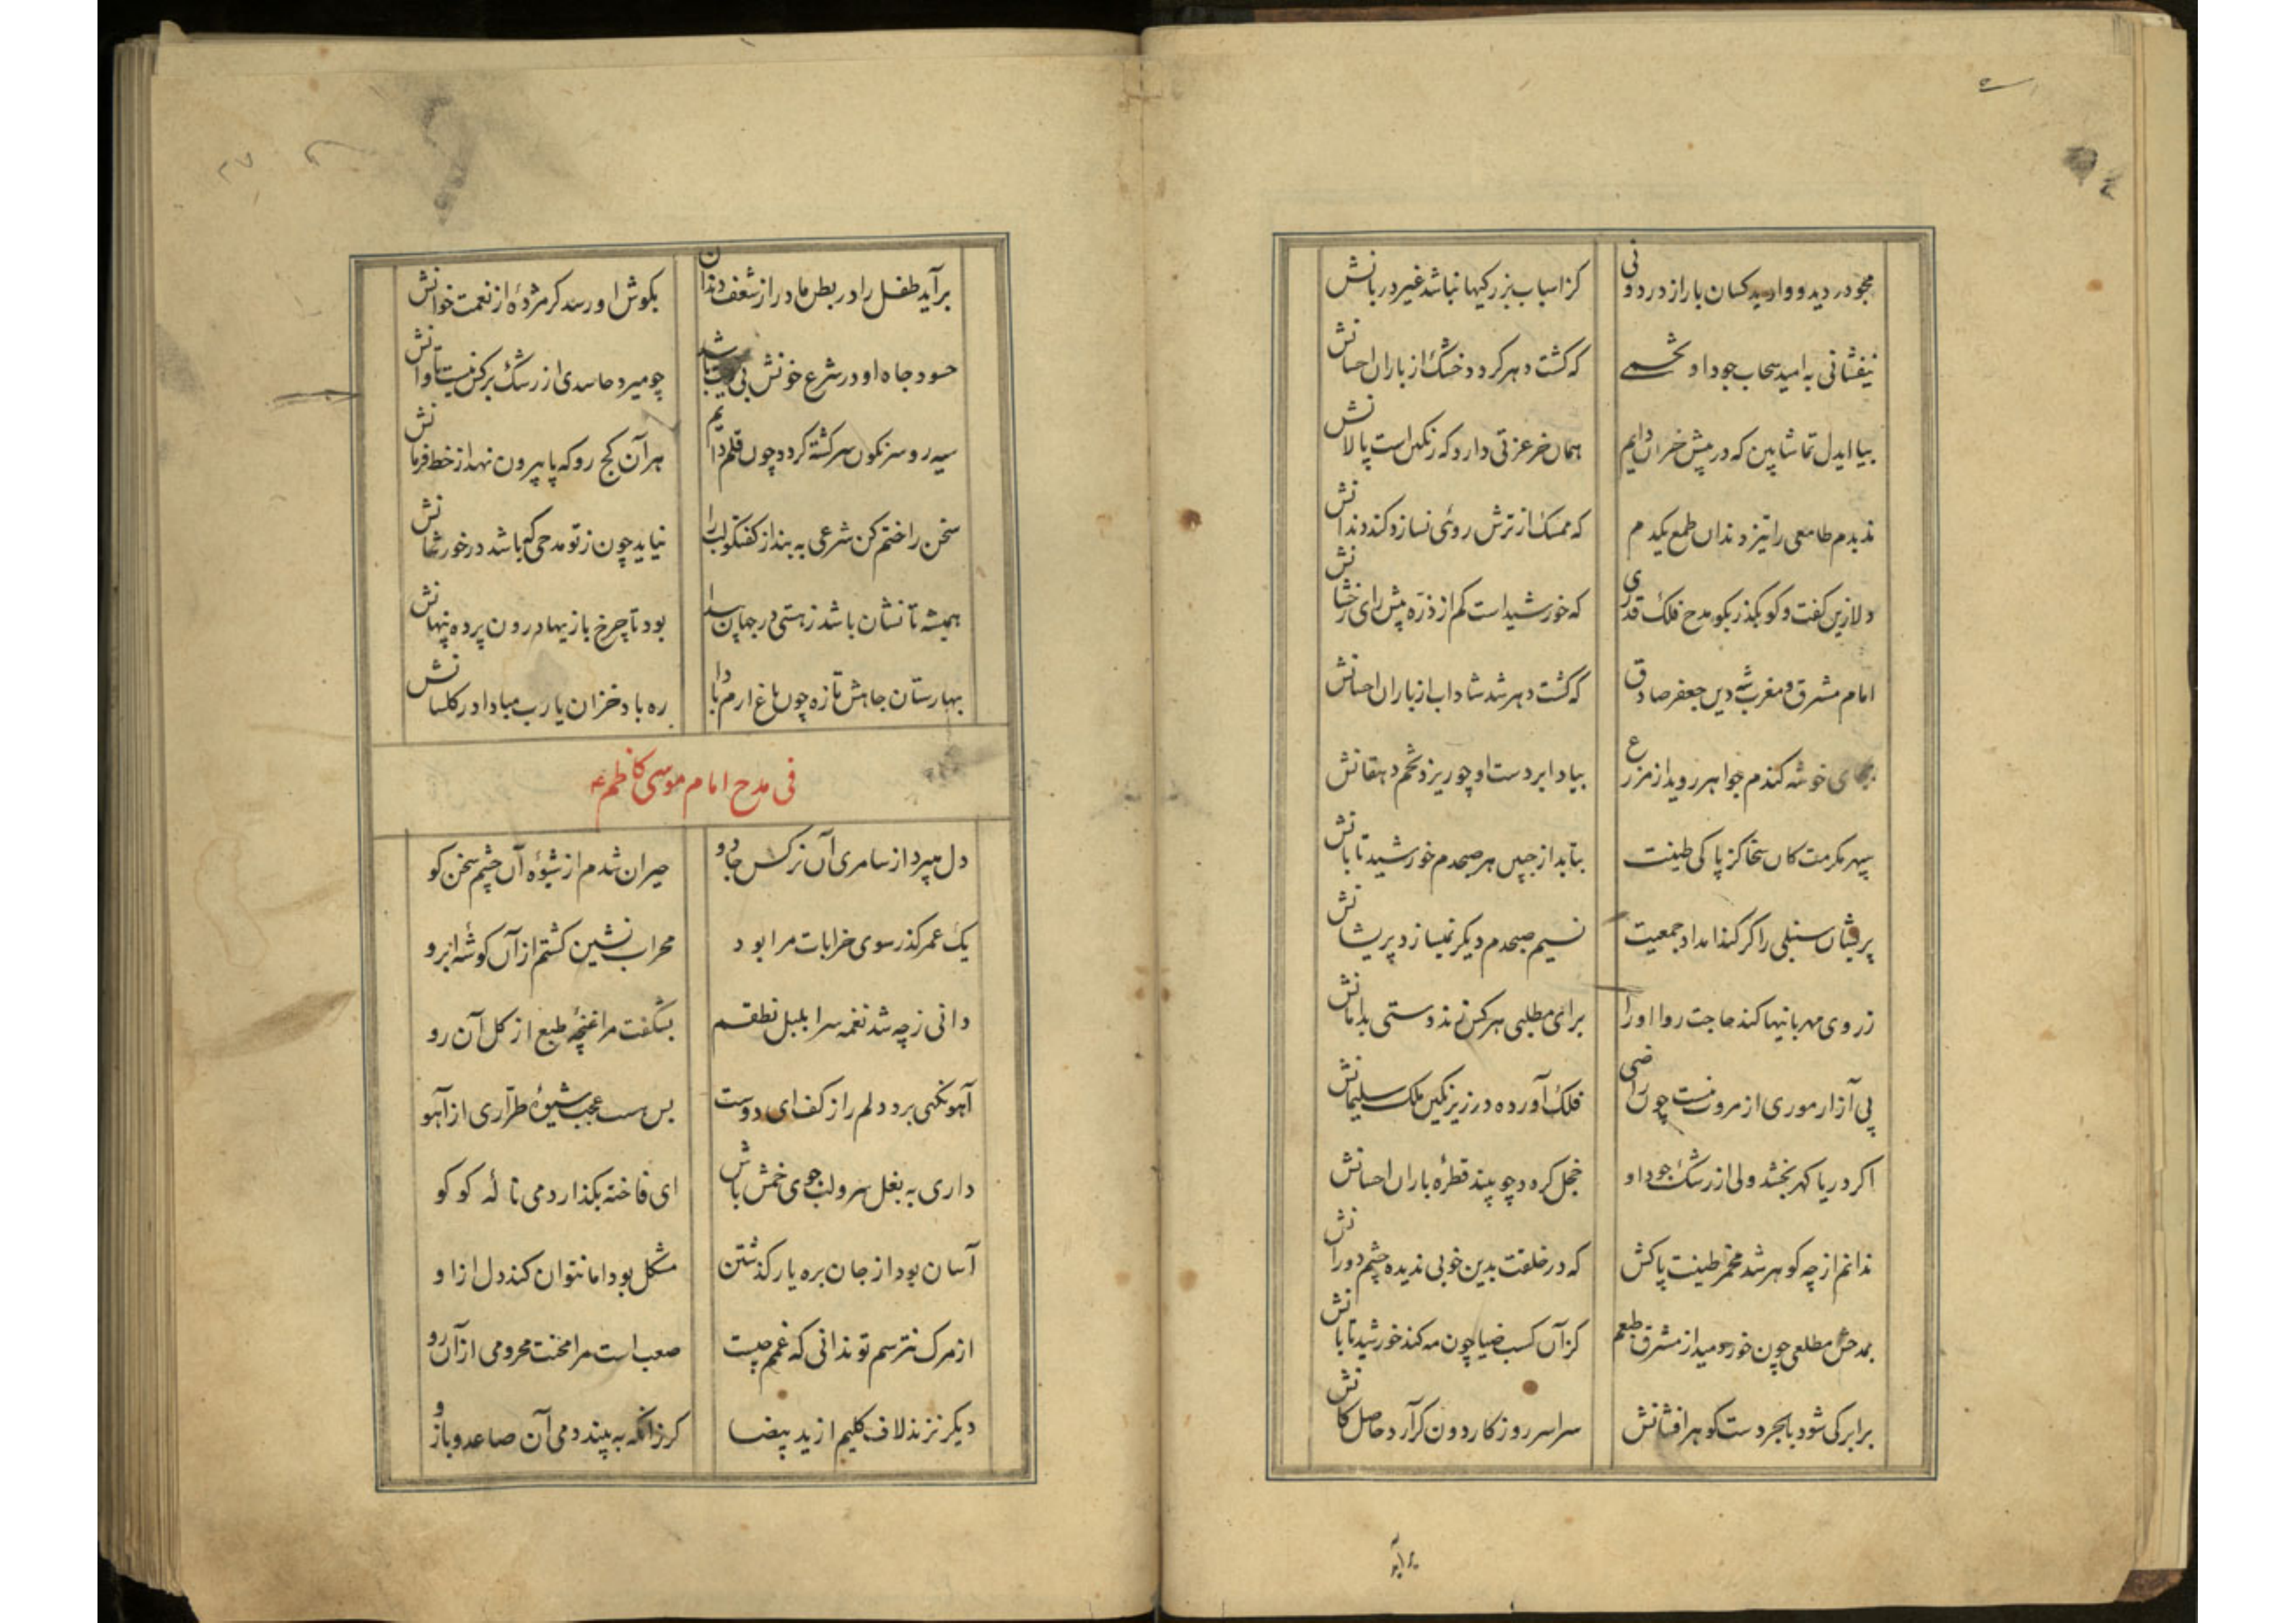 مجو در دید و وادید کسان بار از در دونی
کز اسباب بزرکیها نباشد غیر دربانش
نیفشانی به امید سحاب جود او تخمی
که کشت دهر کردد خشک از باران احسانش
بیا ایدل تماشا بین که در پیش خران دایم
همان خر عزتی دارد که رنکین است پالانش
ندیدم طامعی را تیز دندان طمع یکدم
که ممسک از ترش روئی نسازد کند دندانش
دلا زین کفت و کو بکذر بکو مدح فلک قدری
که خورشید است کم از ذره پیش رای رخشانش
امام مشرق و مغرب شه دین جعفر صادق
که کشت دهر شد شاداب از باران احسانش
بجای خوشه کندم جواهر روید از مزرع
بیاد ابر دست او چو ریزد تخم دهقانش
سپهر مکرمت کان سخا کز پاکی طینت
بتابد از جبین هر صبحدم خورشید تابانش
پریشان سنبلی را کر کند امداد جمعیت
نسیم صبحدم دیکر نمیسازد پریشانش
ز روی مهربانیها کند حاجت روا او را
برای مطلبی هر کس زند دستی بدامانش
پی آزار موری از مروت نیست چون راضی
فلک آورده در زیر نکین ملک سلیمانش
اکر دریا کهر بخشد ولی از رشک جود او
خجل کردد چو بیند قطرهٔ باران احسانش
ندانم از چه کوهر شد مخمر طینت پاکش
که در خلقت بدین خوبی ندیده چشم دورانش
بمدحش مطلعی چون خور دمید از مشرق طبعم
کز آن کسب ضیا چون مه کند خورشید تابانش
برابر کی شود با بحر دست کوهر افشانش
سراسر روزکار دون کر آرد حاصل کانش
برآید
۲۷
برآید طفل را در بطن مادر از شعف دندان
بکوش او رسد کر مژدهٔ از نعمت خوانش
حسود جاه او در شرع خونش بی دیت باشد
چو میرد حاسدی از رشک بر کس نیست تاوانش
سیه رو سرنکون سرکشته کردد چون قلم دایم
هر آن کج رو که پا بیرون نهد از خط فرمانش
سخن را ختم کن شرعی به بند از کفتکو لب را
نیاید چون ز تو مدحی که باشد در خور شانش
همیشه تا نشان باشد ز هستی در جهان پیدا
بود تا چرخ بازیها درون پرده پنهانش
بهارستان جاهش تازه چون باغ ارم بادا
ره باد خزان یا رب مبادا در کلستانش
فی مدح امام موسی کاظم ع
دل میبرد از سامری آن نرکس جادو
حیران شدم از شیوهٔ آن چشم سخن کو
یک عمر کذر سوی خرابات مرا بود
محراب نشین کشتم از آن کوشهٔ ابرو
دانی ز چه شد نغمه سرا بلبل نطقم
بشکفت مرا غنچهٔ طبع از کل آن رو
آهو نکهی برد دلم را ز کف ای دوست
بس هست عجب شیوهٔ طراری از آهو
داری به بغل سرو لب جوی خمش باش
ای فاخته بکذار دمی نالهٔ کو کو
آسان بود از جان بره یار کذشتن
مشکل بود اما نتوان کند دل از او
از مرک نترسم تو ندانی که غمم چیست
صعب است مرا محنت محرومی از آن رو
دیکر نزند لاف کلیم از ید بیضا
کر زانکه به بیند دمی آن صاعد و بازو